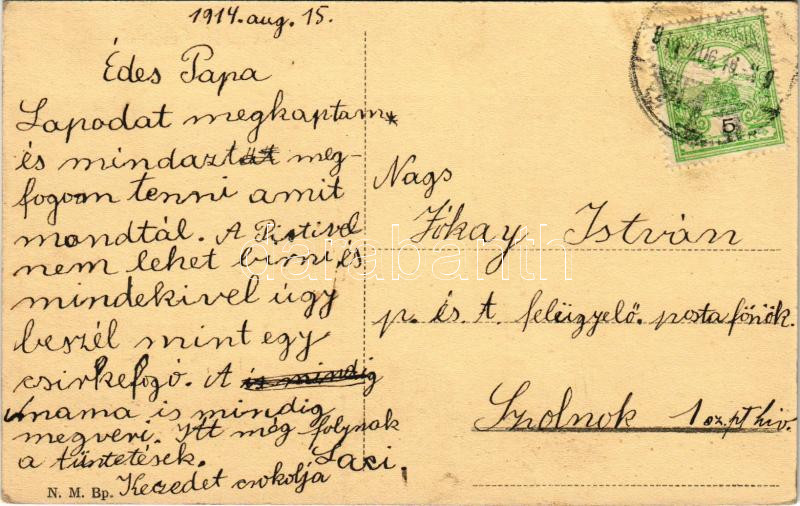 1914. aug. 15.
Édes Papa
Lapodat megkaptam
és mindazt meg-
fogom tenni amit
mondtál. A Pistivel
nem lehet birni, és
mindekivel úgy
beszél mint egy
csirkefogó. A is mindig
mama is mindig
megveri. Itt még folynak
a tüntetések.
Kezedet csokolja Laci.
N. M. Bp.
Nags
Jókay István
p. és t. felügyelő. posta főnök.
Szolnok 1 sz. pt hiv.
5
darabanth